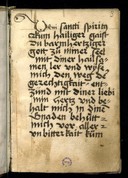 Veni sancti spiritus
kum hailiger gaist
du barmhertziger
got zu aller zeit
mit diner hailsa
men ler und wyse
mich den weg de
gerechtigkait ent
zünd mit diner liebi
min hertz und be
halt mich in dine
gnaden behüt
mich vor aller
unbiterkait kum